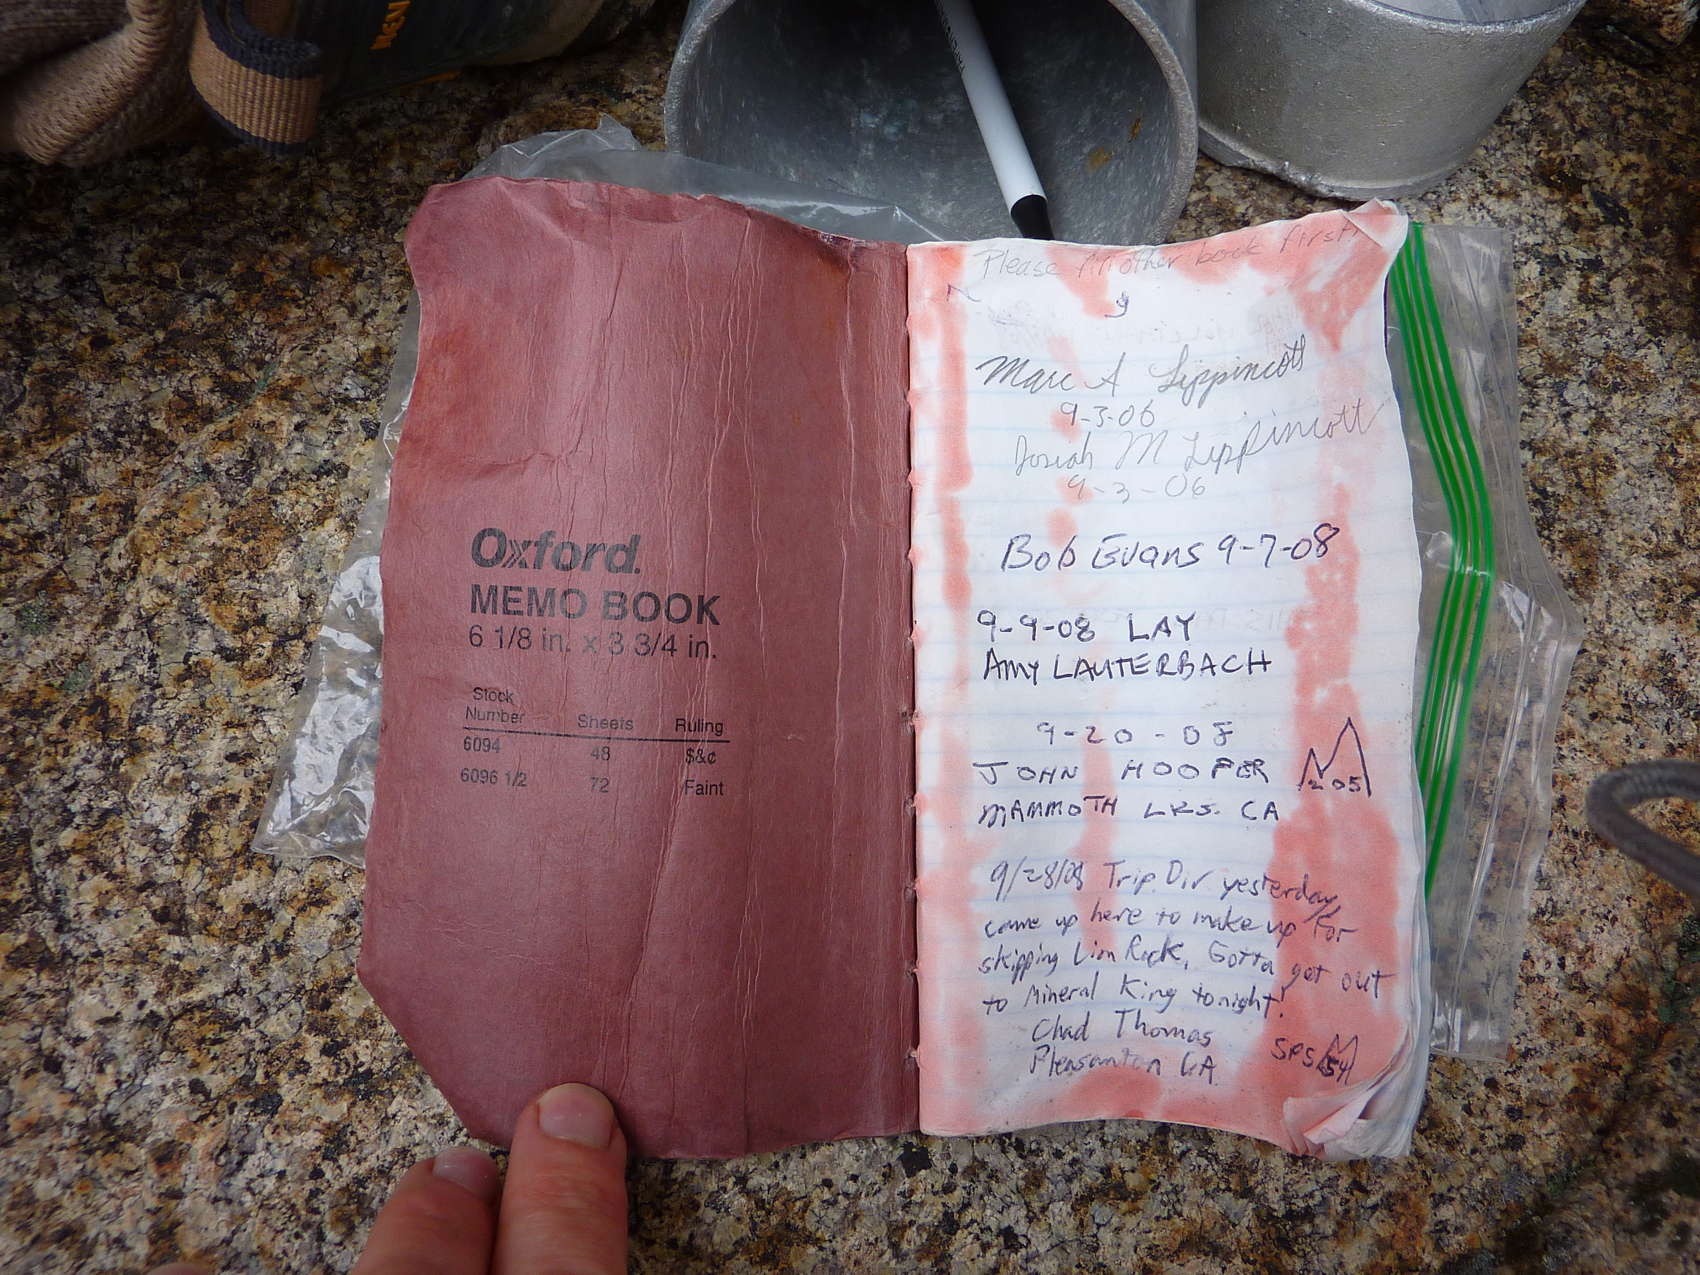 Oxford.
MEMO BOOK
6 1/8 in. x 3 3/4 in.
Stock
Number Sheets Ruling
6094 48 $&¢
6096 1/2 72 Faint
Please fill other book first!
Marc A Lippincott
9-3-06
Josiah M Lippincott
9-3-06
Bob Evans 9-7-08
9-9-08 LAY
AMY LAUTERBACH
9-20-08
JOHN HOOPER 205
MAMMOTH LKS. CA
9/28/08 Trip. Dir yesterday,
came up here to make up for
skipping Lion Rock, Gotta get out
to Mineral King tonight!
Chad Thomas
Pleasanton CA
SPS 54